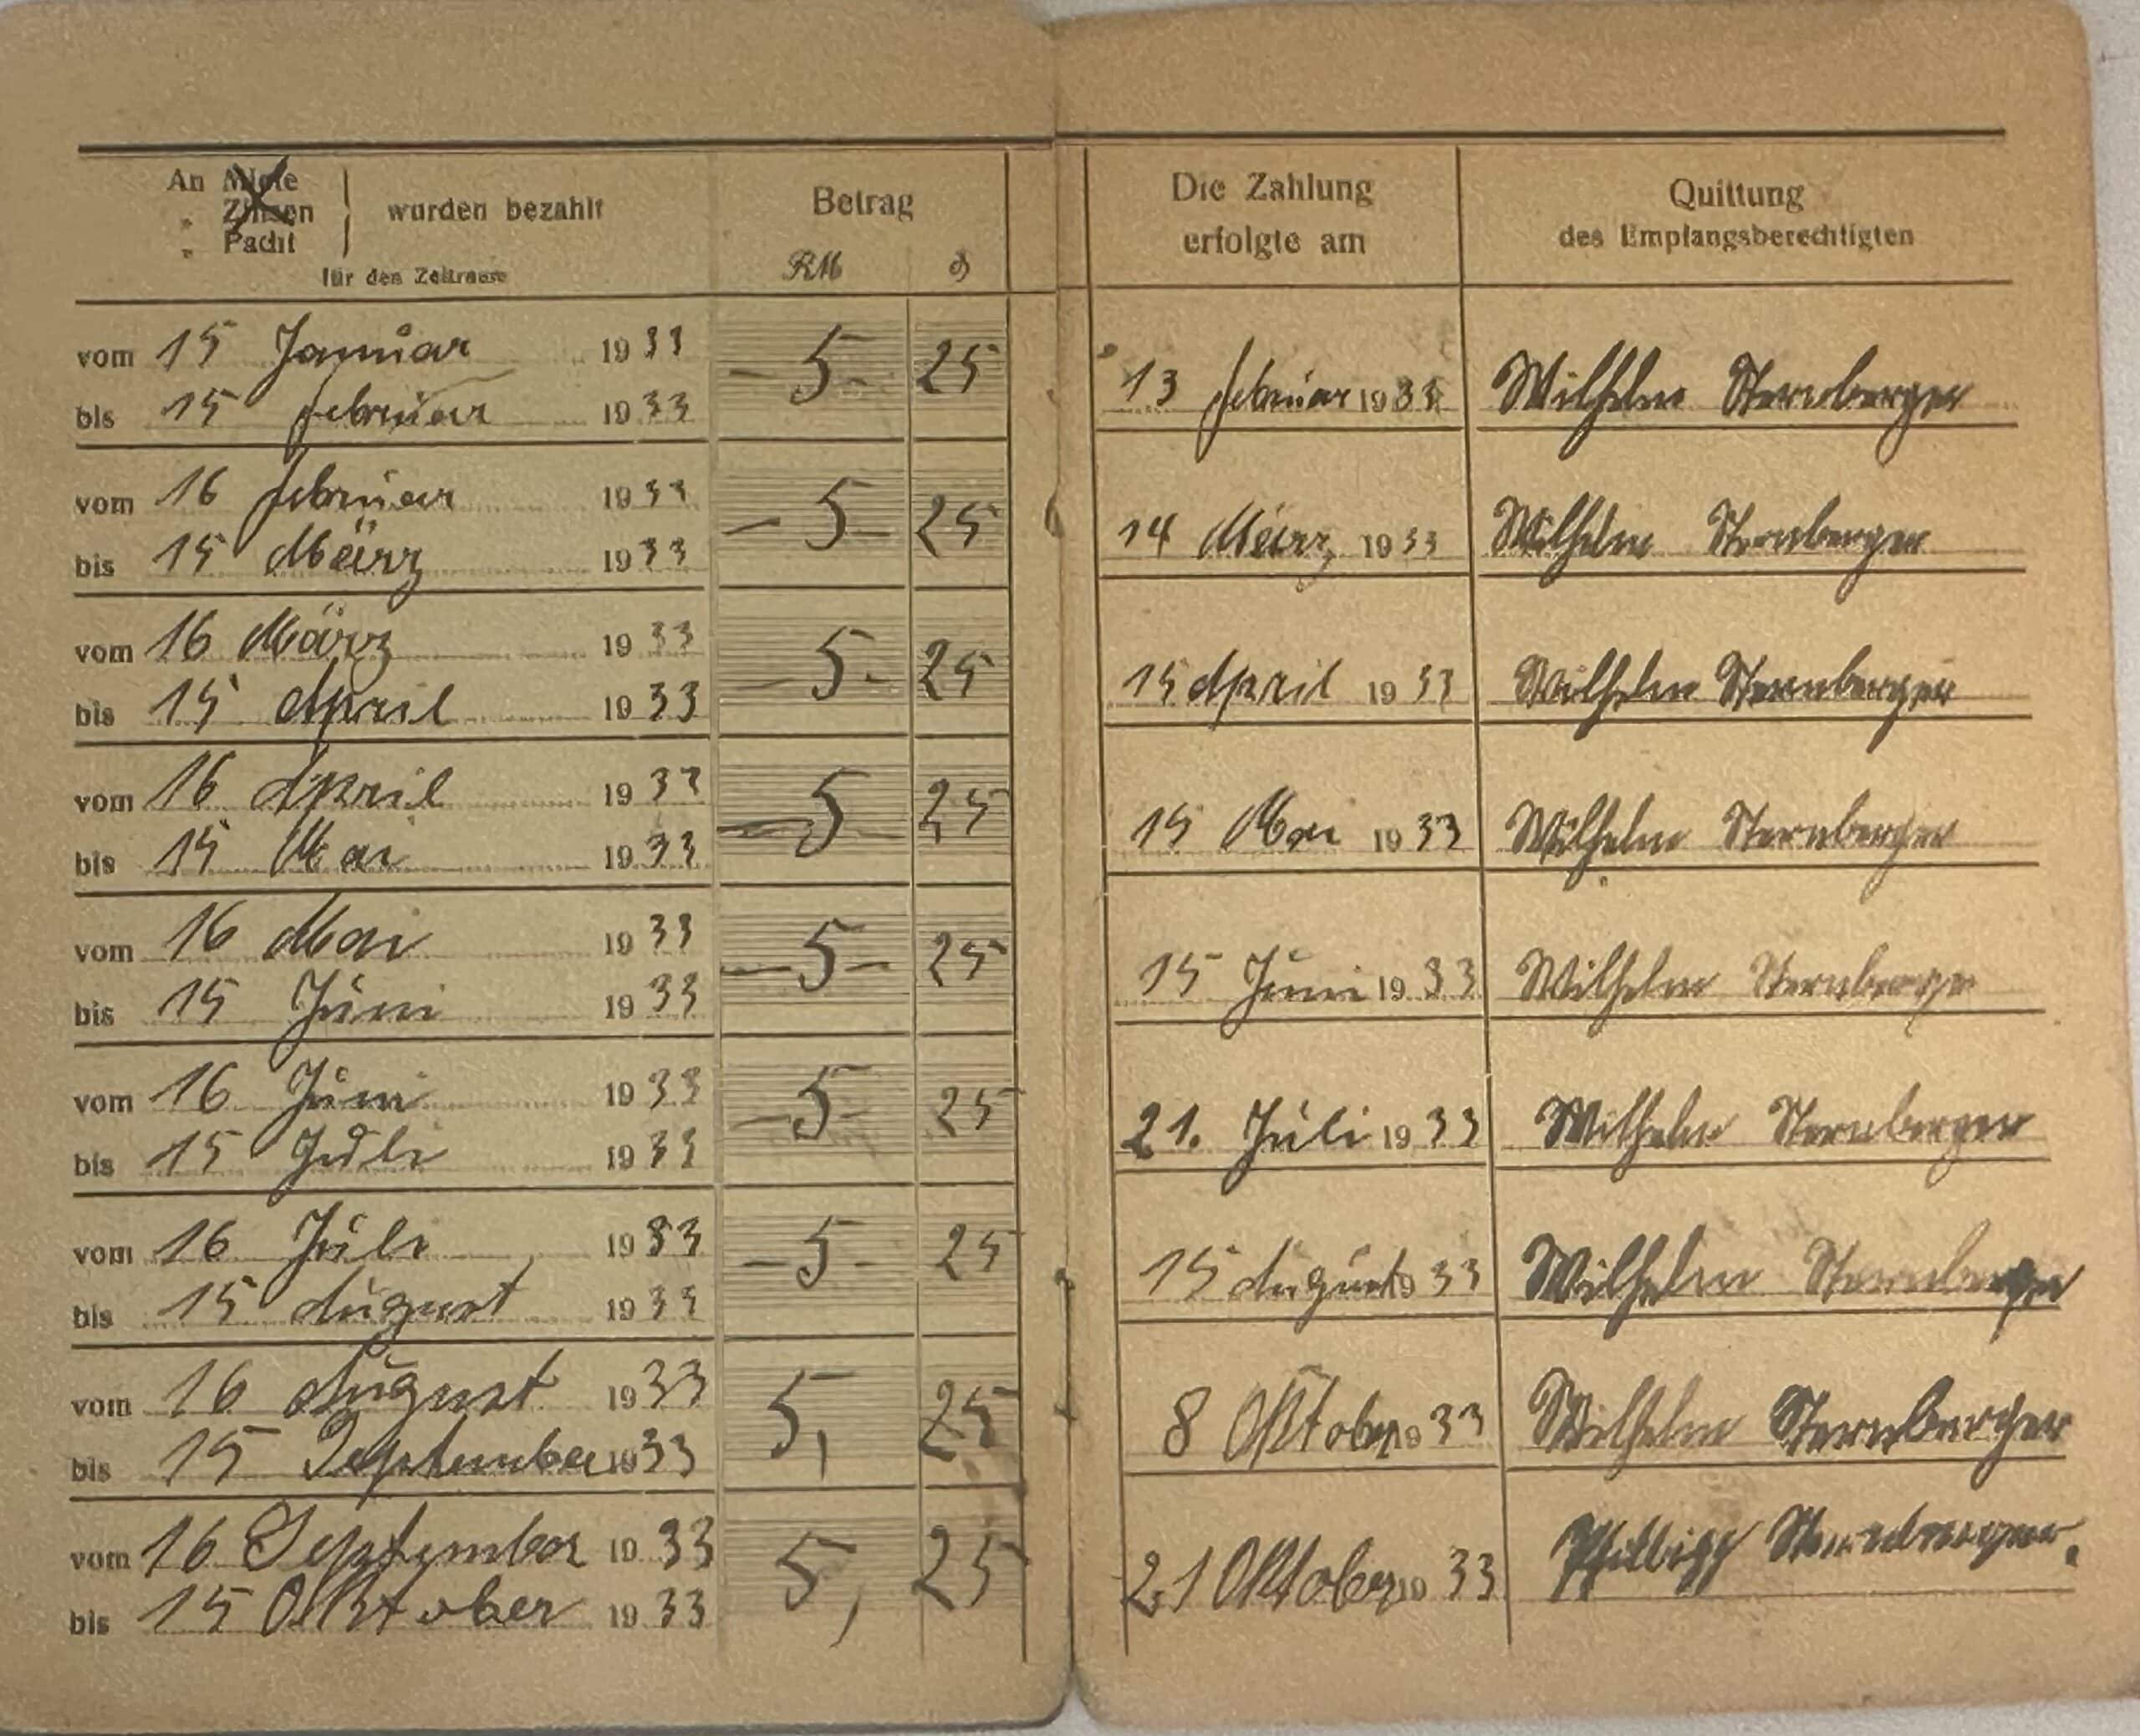 An Miete
„ Zinsen wurden bezahlt
„ Pacht
für den Zeitraum
Betrag
RM ₰
Die Zahlung
erfolgte am
Quittung
des Empfangsberechtigten
vom 15 Januar 1933
bis 15 februar 1933
- 5 - 25
13 februar 1933 Wilhelm Sternberger
vom 16 februar 1933
bis 15 März 1933
- 5 - 25
14 März 1933 Wilhelm Sternberger
vom 16 März 1933
bis 15 April 1933
- 5 - 25
15 April 1933 Wilhelm Sternberger
vom 16 April 1933
bis 15 Mai 1933
- 5 25
15 Mai 1933 Wilhelm Sternberger
vom 16 Mai 1933
bis 15 Juni 1933
- 5 - 25
15 Juni 1933 Wilhelm Sternberger
vom 16 Juni 1933
bis 15 Juli 1933
- 5 - 25
21. Juli 1933 Wilhelm Sternberger
vom 16 Juli 1933
bis 15 August 1933
- 5 - 25
15 August 1933 Wilhelm Sternberger
vom 16 August 1933
bis 15 September 1933
5, 25
8 Oktober 1933 Wilhelm Sternberger
vom 16 September 1933
bis 15 Oktober 1933
5, 25
21 Oktober 1933 Sternberger.